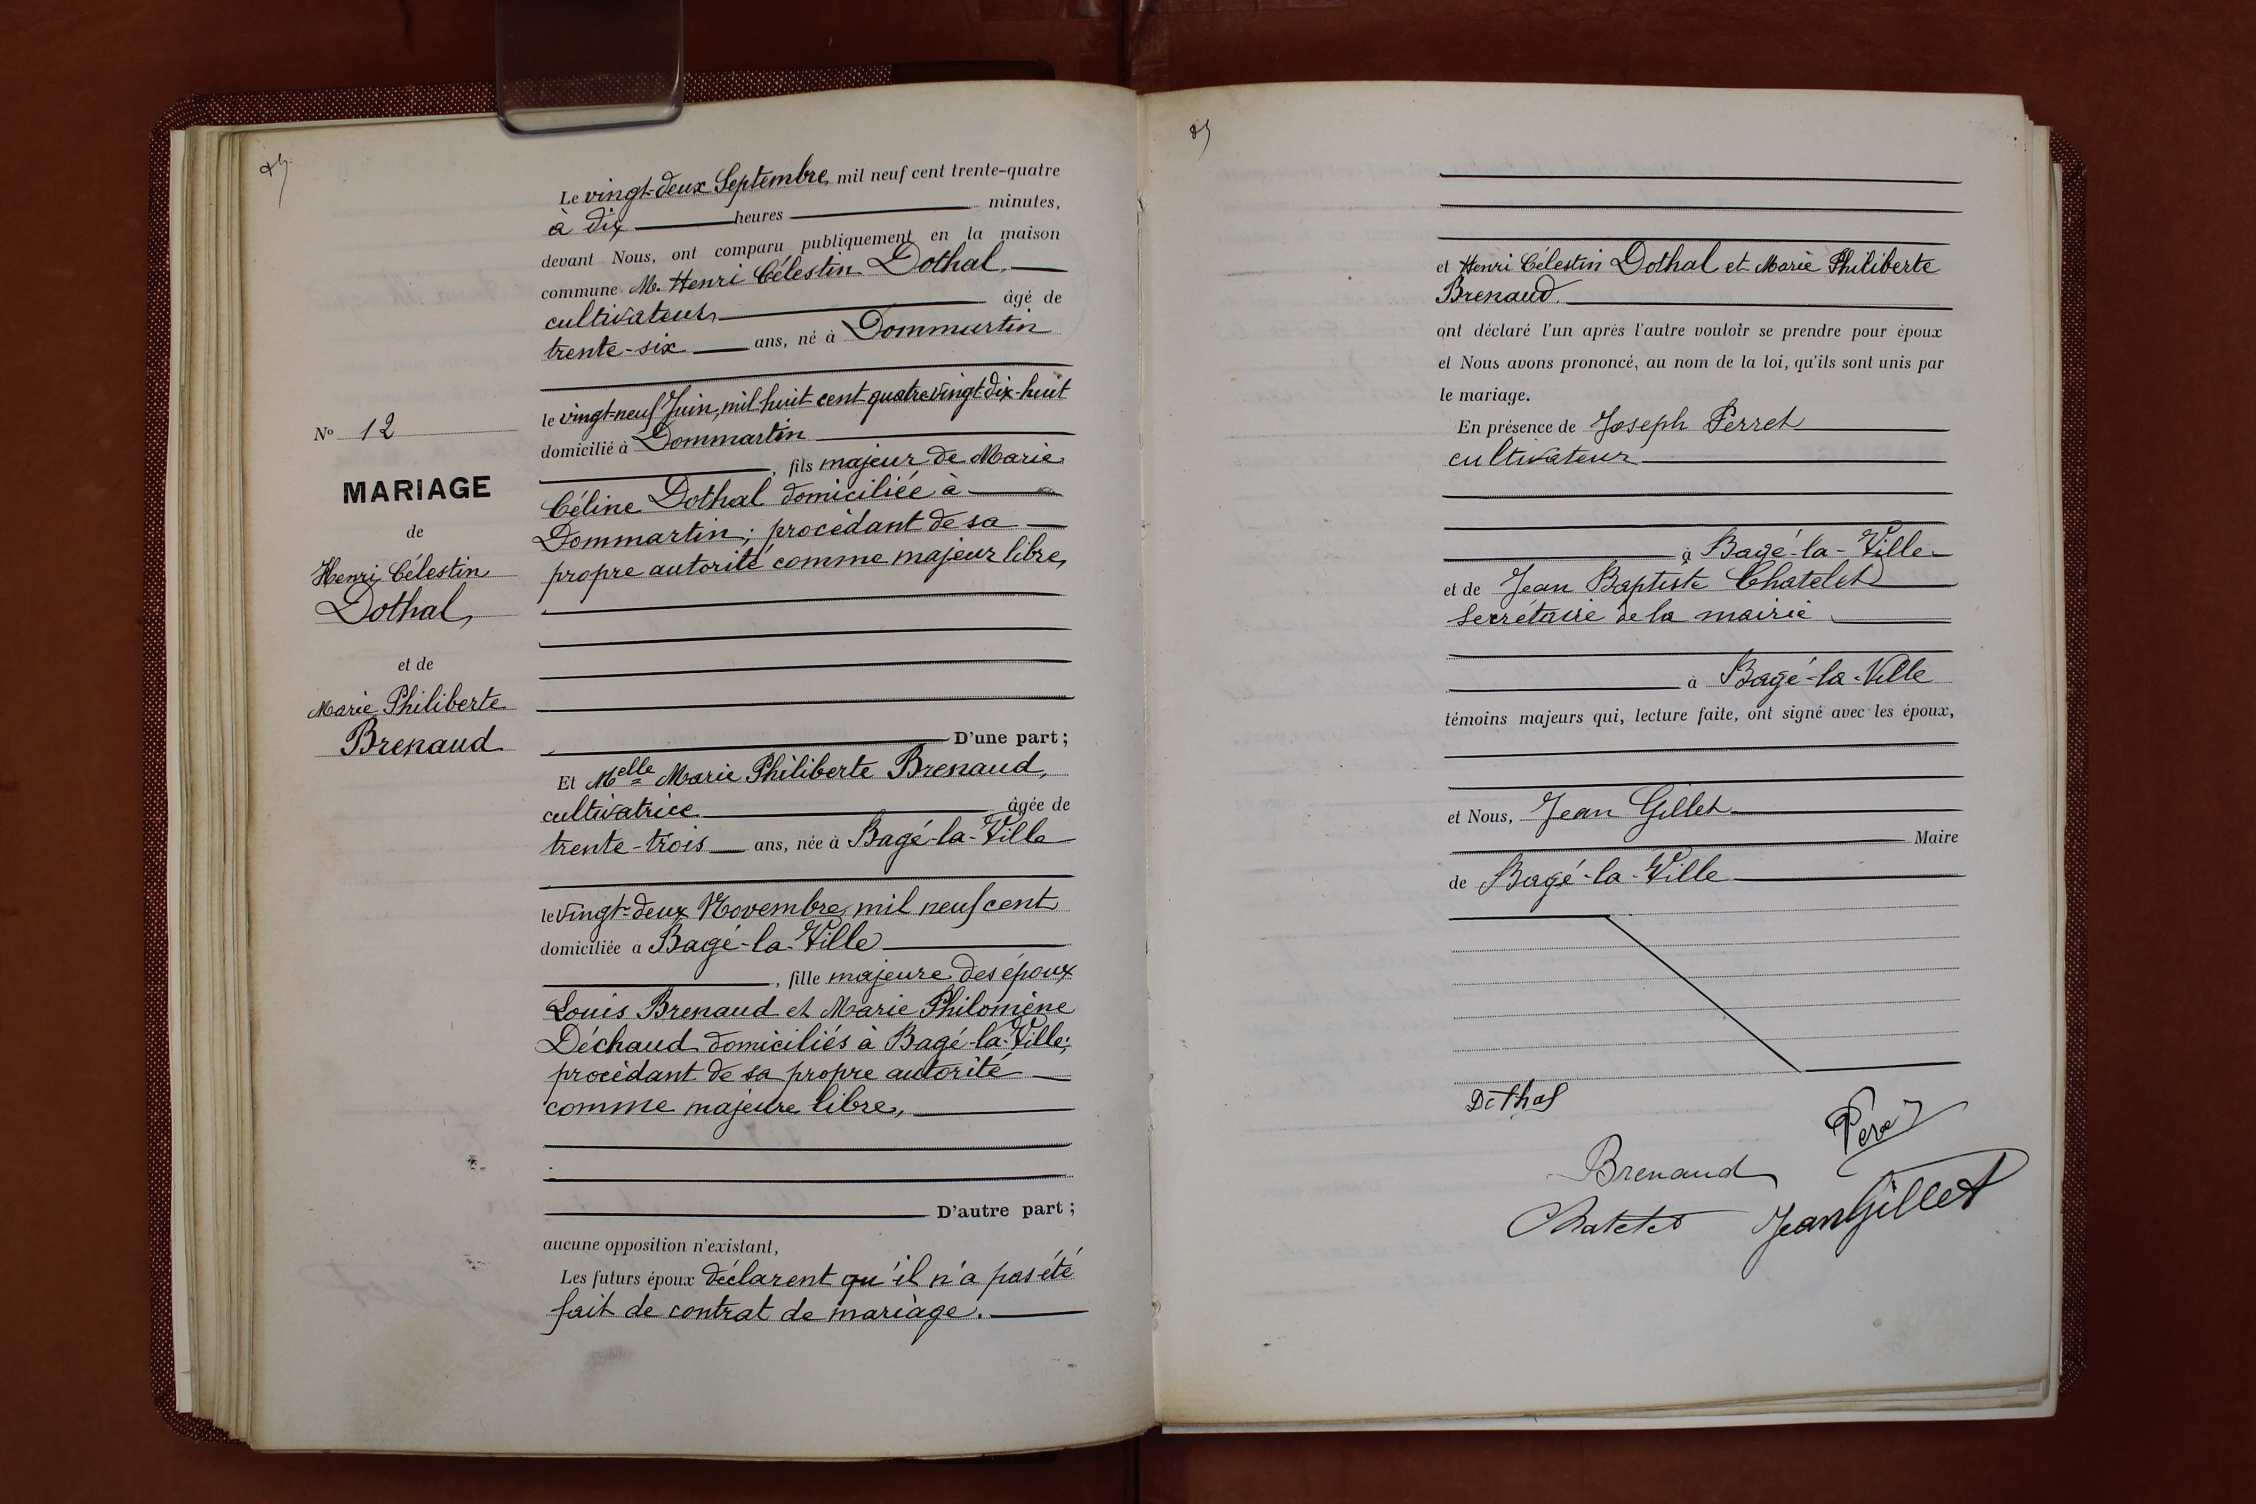 Le vingt-deux Septembre, mil neuf cent trente-quatre
à dix heures minutes,
devant Nous, ont comparu publiquement en la maison
commune M. Henri Célestin Dothal,
cultivateur, âgé de
trente-six ans, né à Dommartin
le vingt-neuf Juin, mil huit cent quatre vingt dix-huit
domicilié à Dommartin
, fils majeur de Marie
Céline Dothal domiciliée à
Dommartin ; procédant de sa
propre autorité comme majeur libre,
D'une part ;
Nº 12
MARIAGE
de
Henri Célestin
Dothal,
et de
Marie Philiberte
Brenaud
Et Melle Marie Philiberte Brenaud,
cultivatrice âgée de
trente-trois ans, née à Bagé-la-Ville
le vingt-deux Novembre mil neuf cent
domiciliée à Bagé-la-Ville
, fille majeure des époux
Louis Brenaud et Marie Philomène
Déchaud domiciliés à Bagé-la-Ville;
procédant de sa propre autorité
comme majeure libre,
D'autre part ;
aucune opposition n'existant,
Les futurs époux déclarent qu'il n'a pas été
fait de contrat de mariage.
et Henri Célestin Dothal et Marie Philiberte
Brenaud.
ont déclaré l'un après l'autre vouloir se prendre pour époux
et Nous avons prononcé, au nom de la loi, qu'ils sont unis par
le mariage.
En présence de Joseph Perret
cultivateur
à Bagé-la-Ville
et de Jean Baptiste Chatelet
Secrétaire de la mairie
à Bagé-la-Ville
témoins majeurs qui, lecture faite, ont signé avec les époux,
et Nous, Jean Gillet
Maire
de Bagé-la-Ville
Dothal
Brenaud
Chatelet
Jean Gillet